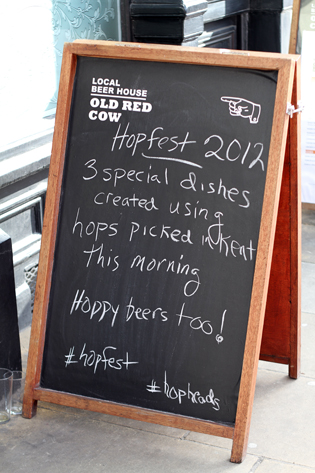 LOCAL
BEER HOUSE
OLD RED
COW
Hopfest 2012
3 special dishes
created using
hops picked in KENT
this morning
Hoppy beers too!
#hopfest
#hopheads